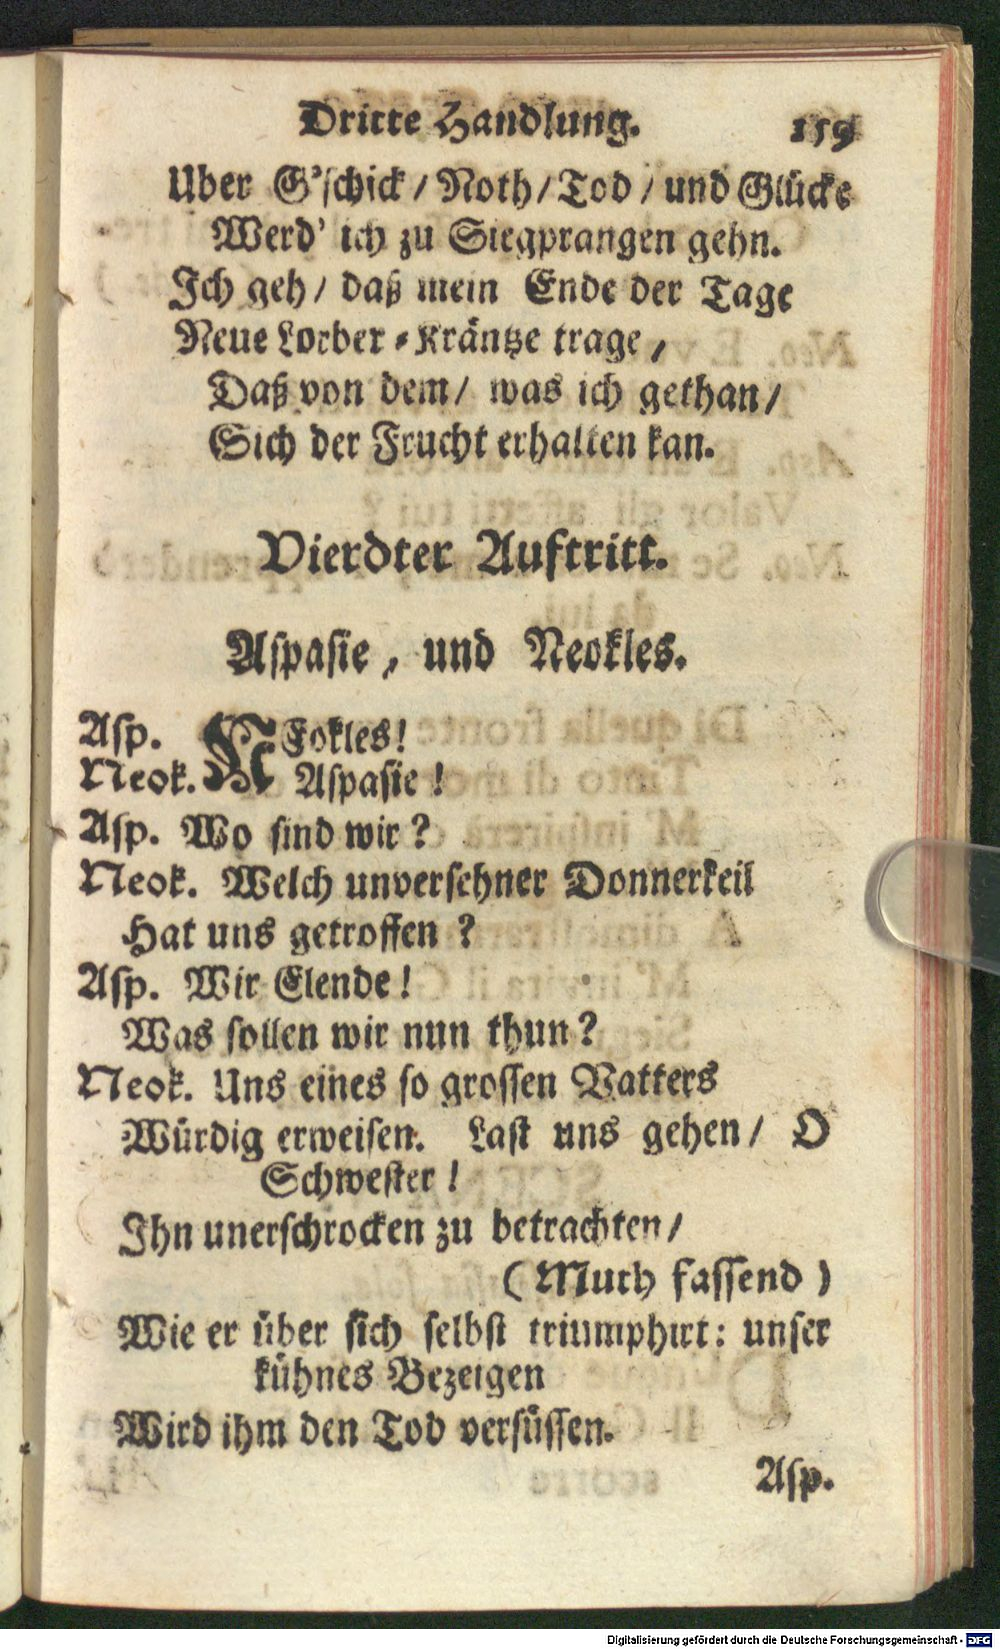 Dritte Handlung. 159
Uber G'schick / Noth / Tod / und Glücke
Werd' ich zu Siegprangen gehn.
Ich geh / daß mein Ende der Tage
Neue Lorber-Kräntze trage,
Daß von dem / was ich gethan /
Sich der Frucht erhalten kan.
Vierdter Auftritt.
Aspasie, und Neokles.
Asp. NEokles!
Neok. Aspasie!
Asp. Wo sind wir?
Neok. Welch unversehner Donnerkeil
Hat uns getroffen?
Asp. Wir Elende!
Was sollen wir nun thun?
Neok. Uns eines so grossen Vatters
Würdig erweisen. Last uns gehen / O
Schwester!
Ihn unerschrocken zu betrachten /
(Muth fassend)
Wie er über sich selbst triumphirt: unser
kühnes Bezeigen
Wird ihm den Tod versüssen.
Asp.
Digitalisierung gefördert durch die Deutsche Forschungsgemeinschaft - DFG